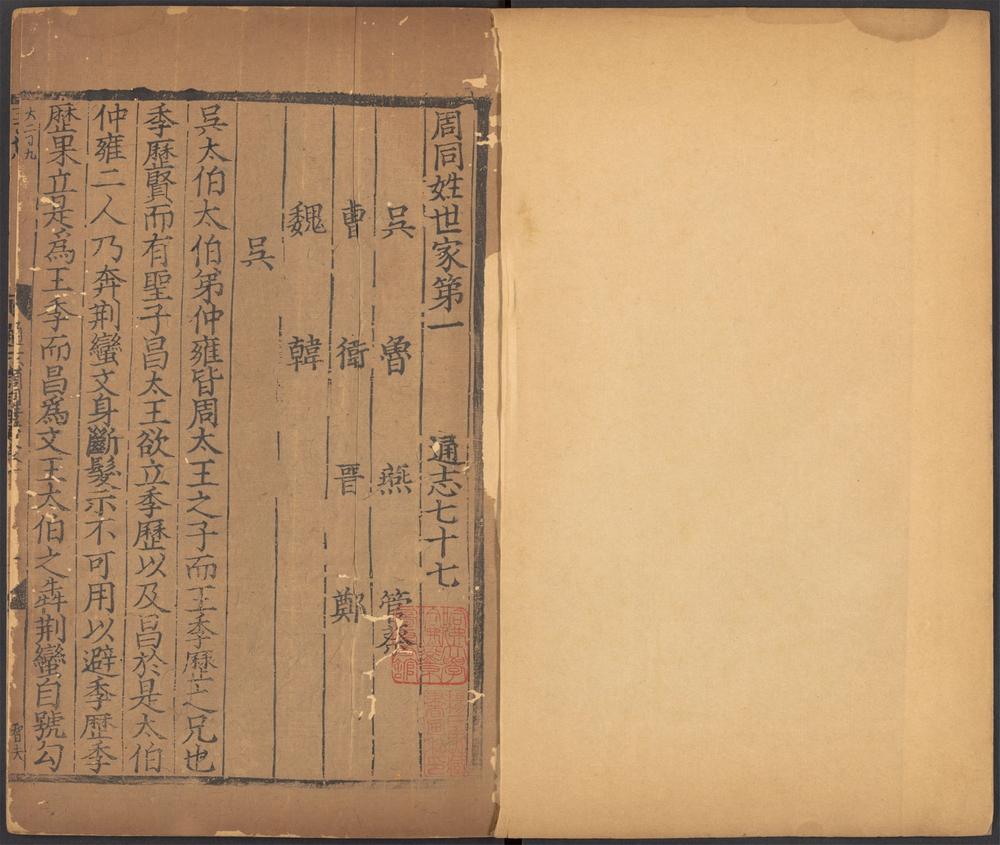 周同姓世家第一 通志七十七
吳 魯 燕 管蔡
曹 衛 晉 鄭
魏 韓
吳
吳太伯太伯弟仲雍皆周太王之子而王季歷之兄也
季歷賢而有聖子昌太王欲立季歷以及昌於是太伯
仲雍二人乃奔荊蠻文身斷髮示不可用以避季歷季
歷果立是為王季而昌為文王太伯之犇荊蠻自號勾